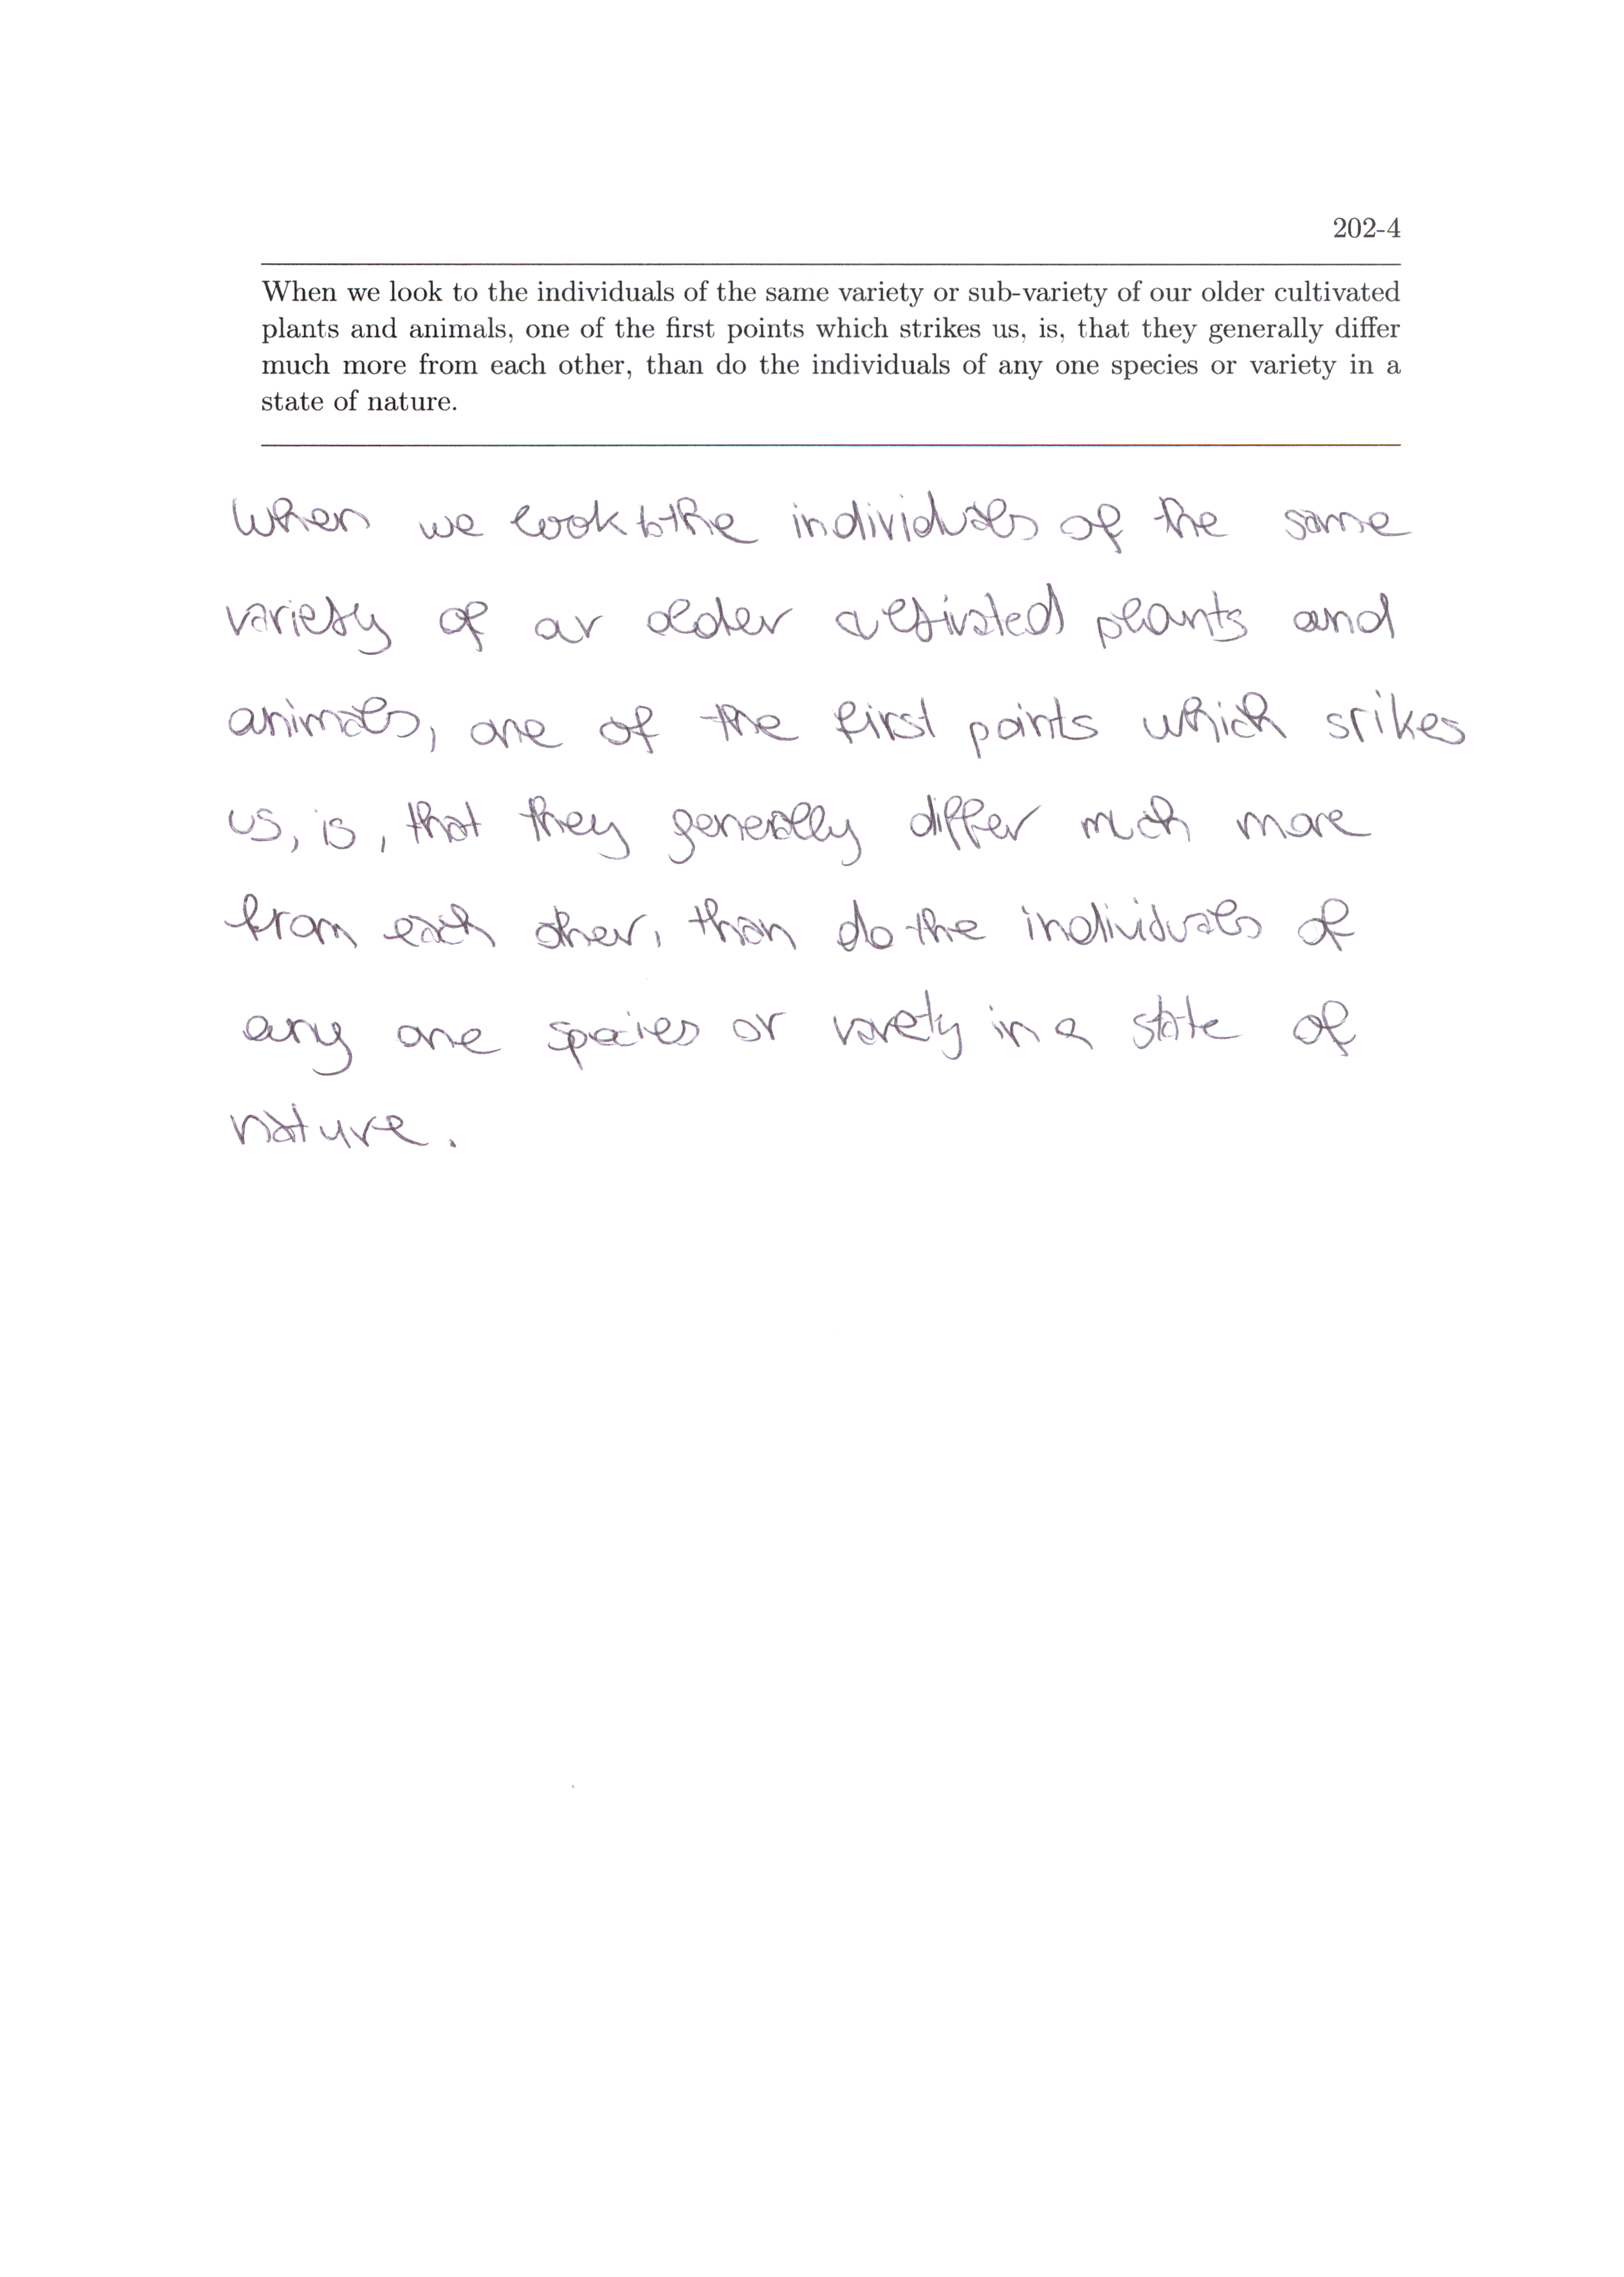 202-4
When we look to the individuals of the same variety or sub-variety of our older cultivated
plants and animals, one of the first points which strikes us, is, that they generally differ
much more from each other, than do the individuals of any one species or variety in a
state of nature.
When we look to the individuals of the same
variety of our older cultivated plants and
animals, one of the first points which srikes
us, is, that they generally differ much more
from each other, than do the individuals of
any one species or variety in a state of
nature.